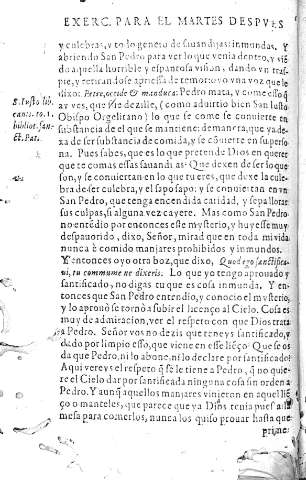 EXERC. PARA EL MARTES DESPVES
y culebras, y todo genero de sauandijas inmundas. Y
abriendo San Pedro para ver lo que venia dentro, y viē
do aquella horrible y espantosa vision, dando vn tras-
pie, y retirandose apriessa de temor oyo vna voz que le
dixo: Petre, occide & manduca: Pedro mata, y come esso q̄
ay ves, que fue dezille, (como aduirtio bien San Iusto
Obispo Orgelitano) lo que se come se conuierte en
substancia del que se mantiene: demanera, que ya de-
xa de ser substancia de comida, y se cōuierte en superso-
na. Pues sabes, que es lo que pretende Dios en querer
que te comas essas sauandijas? Que dexen de ser lo que
son, y se conuiertan en lo que tu eres, que dexe la cule-
bra de ser culebra, y el sapo sapo: y se conuiertan en vn
San Pedro, que tenga encendida caridad, y sepa llorar
sus culpas, si alguna vez cayere. Mas como San Pedro
no entēdio por entonces este mysterio, y huyesse muy
despauorido, dixo, Señor, mirad que en toda mi vida
nunca è comido manjares prohibidos y inmundos.
Y entonces oyo otra boz, que dixo, Quod ego sanctifica-
ui, tu commune ne dixeris. Lo que yo tengo aprouado y
santificado, no digas tu que es cosa inmunda. Y en-
tonces que San Pedro entendio, y conocio el mysterio,
y lo aprouò se tornò a subir el lienço al Cielo. Cosa es
muy de admiracion, ver el respeto con que Dios trata
a Pedro. Señor vos no dezis que teneys santificado, y
dado por limpio esso, que viene en esse liēço? Que se os
da que Pedro, ni lo abone, ni lo declare por santificado?
Aqui vereys el respeto q̄ se le tiene a Pedro, q̄ no quie-
re el Cielo dar por santificada ninguna cosa sin orden a
Pedro. Y aunq̄ aquellos manjares vinieron en aquel liē
ço o manteles, que parece que ya Dios tenia puesta la
mesa para comerlos, nunca los quiso prouar hasta que
prime-
S. Iusto libr.
cant. to. 1.
bibliot. san-
ct. Pat.